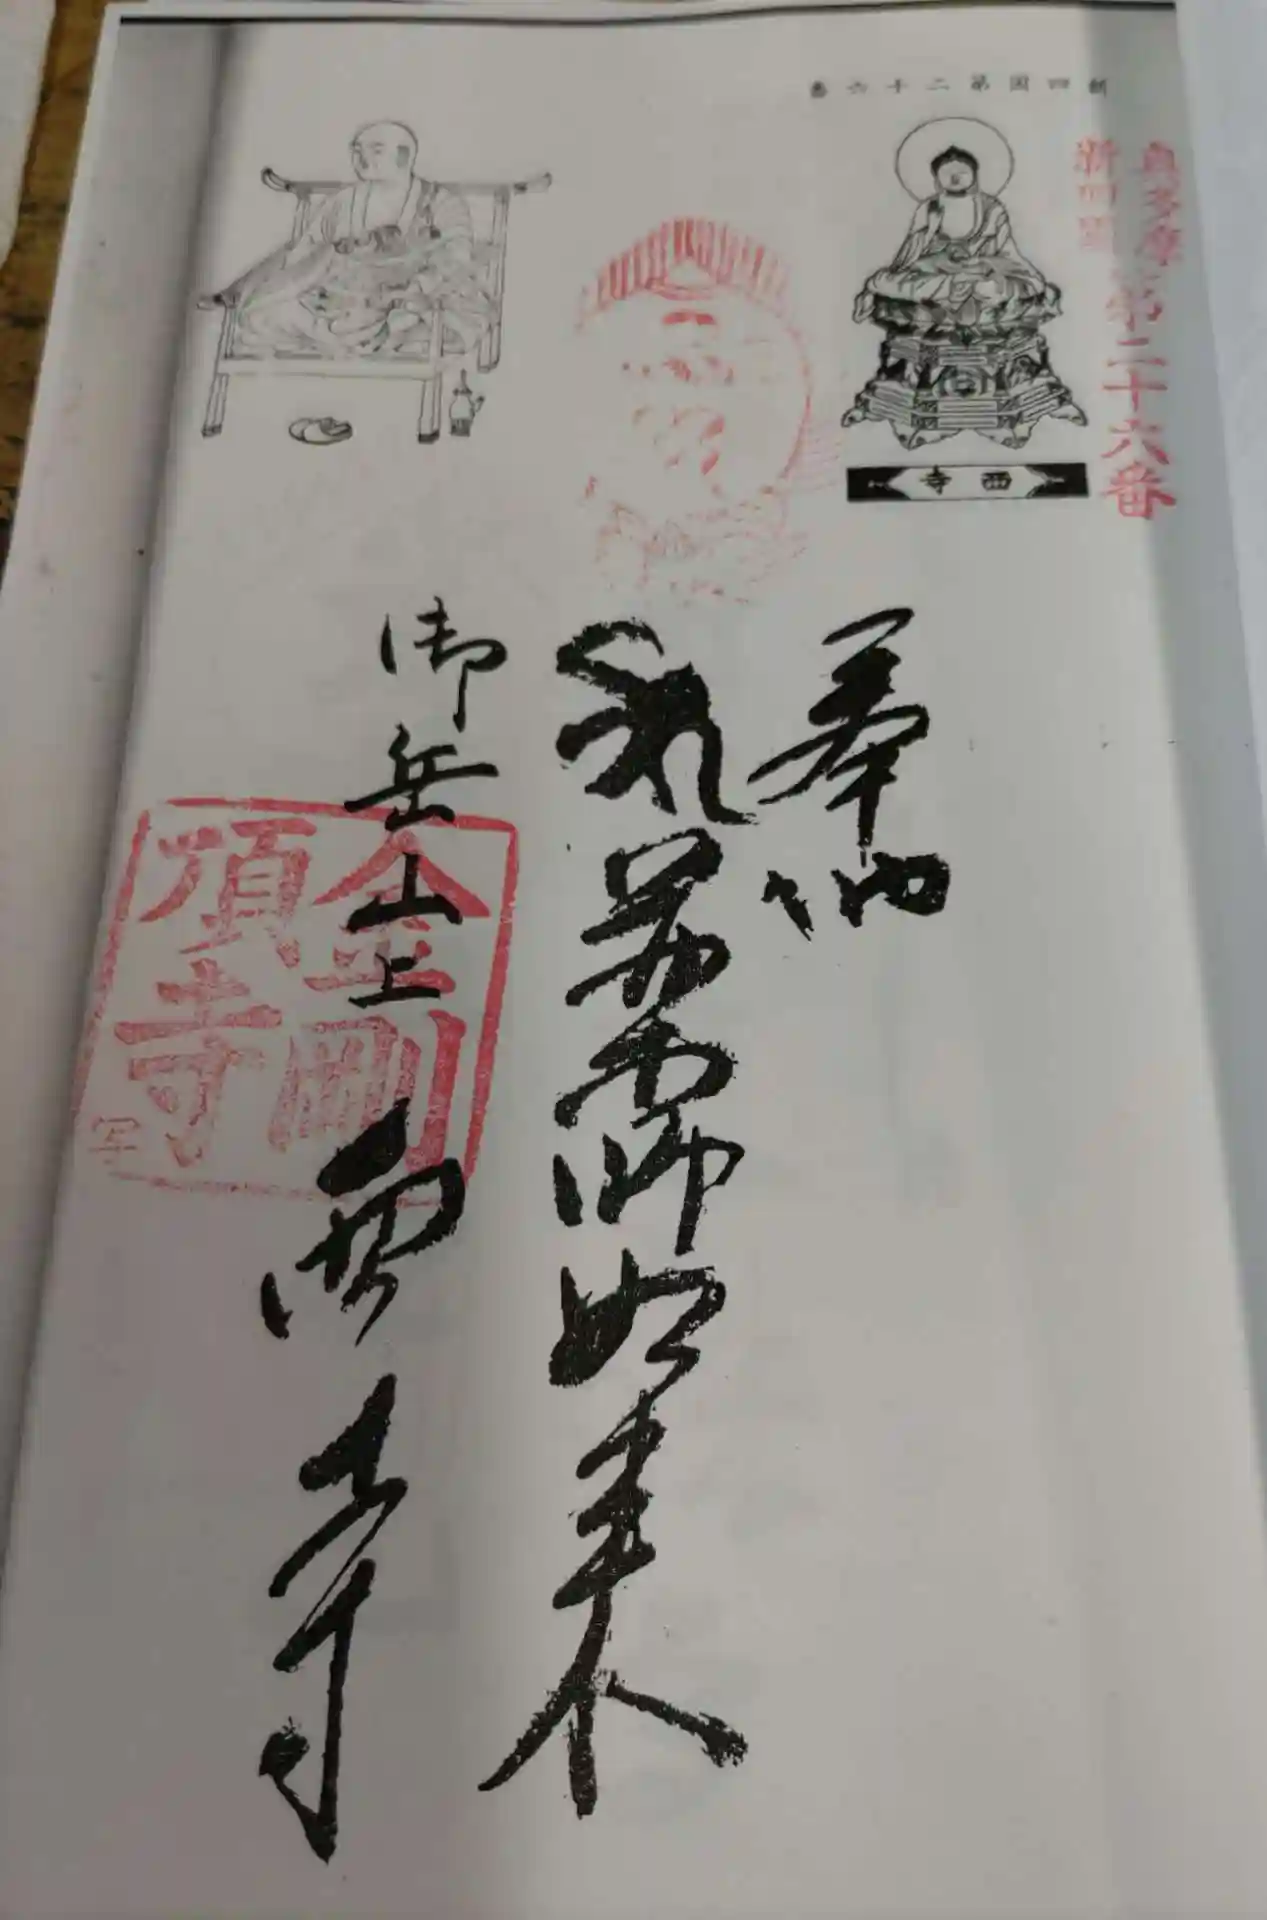 新四国第二十六番
奥多摩
新四国
第二十六番
西寺
奉納
薬師如来
御岳山上 西寺
金剛
頂寺
写